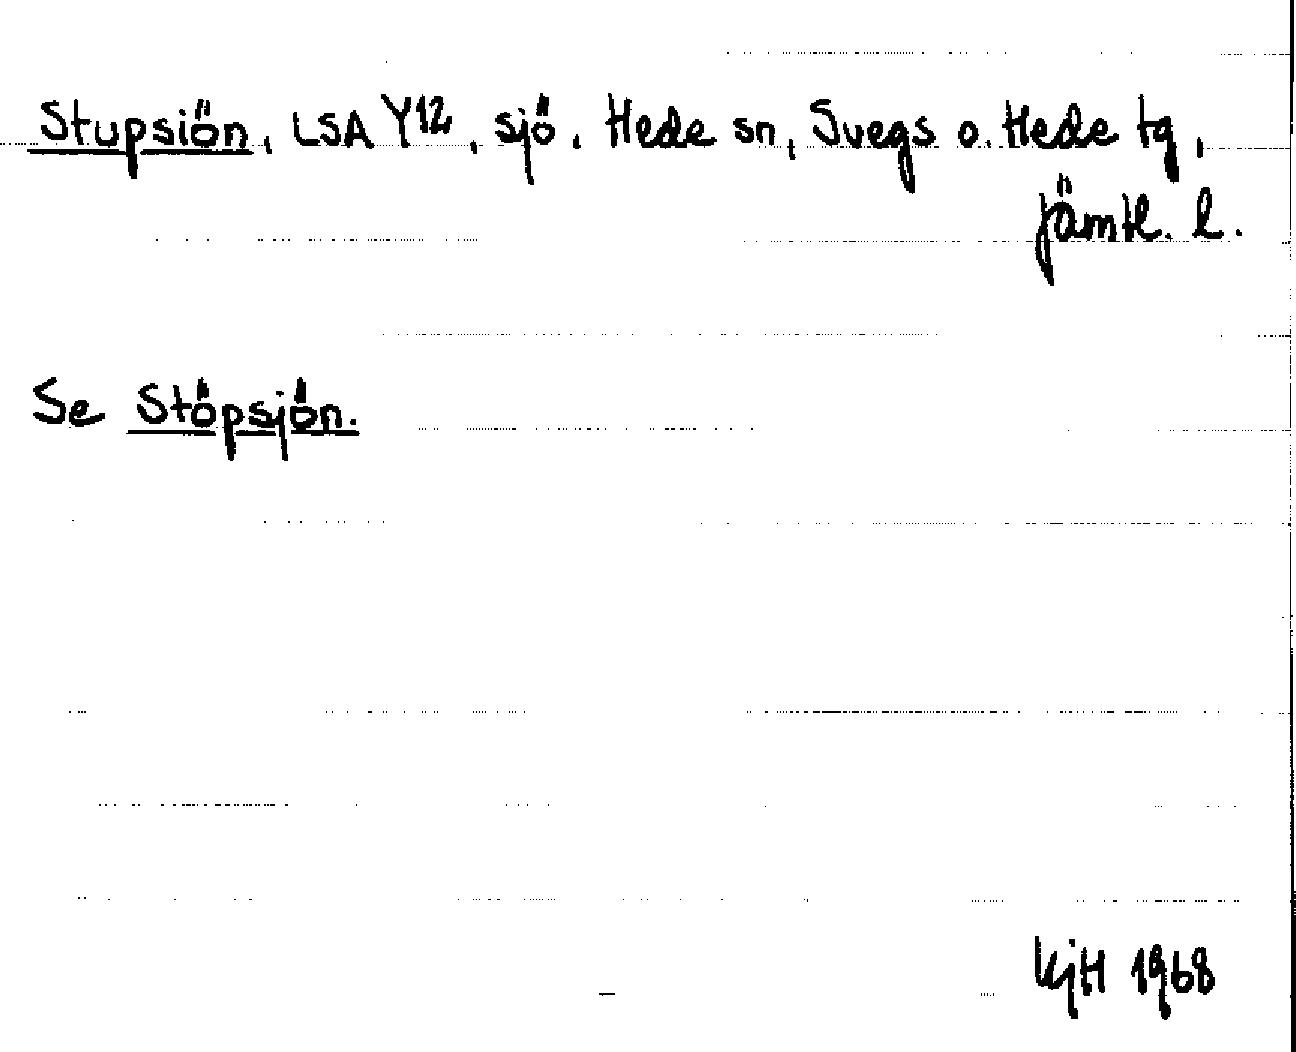 Stupsiön, LSA Y12, sjö. Hede sn, Svegs o. Hede tg,
Jämtl. l.
Se Stöpsjön.
KjH 1968